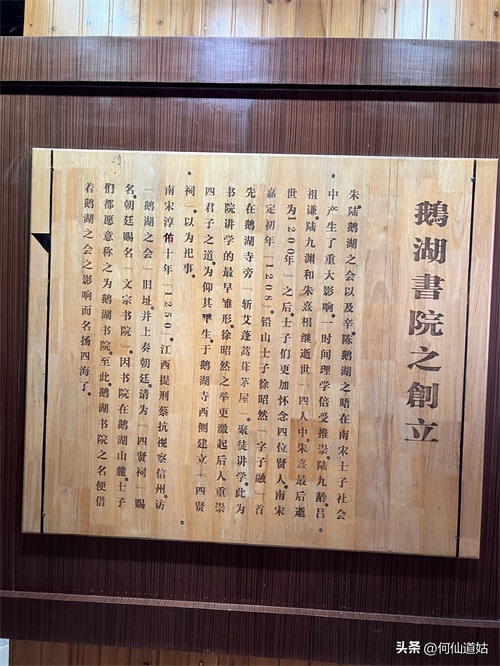 鵝湖書院之創立
朱陆鹅湖之会以及辛、陈鹅湖之晤在南宋士子社会
中产生了重大影响。一时间理学倍受推崇。陆九龄、吕
祖谦、陆九渊和朱熹相继逝世（四人中，朱熹最后逝
世为1200年）之后。士子们更加怀念四位贤人。南宋
嘉定初年（1208），铅山士子徐昭然（字子融）首
先在鹅湖寺旁「斩艾蓬蒿葺茅屋」，聚徒讲学。此为
书院讲学的最早雏形。徐昭然之举更激起后人重崇
四君子之道。为仰其平生。于鹅湖寺西侧建立「四贤
祠」以为祀事。
南宋淳佑十年（1250），江西提刑蔡抗视察信州。访
「鹅湖之会」旧址。并上奏朝廷。请为「四贤祠」赐
名。朝廷赐名「文宗书院」。因书院在鹅湖山麓。士子
们都愿意称之为鹅湖书院。至此。鹅湖书院之名便借
着鹅湖之会之影响而名扬四海了。
头条 @何仙道姑